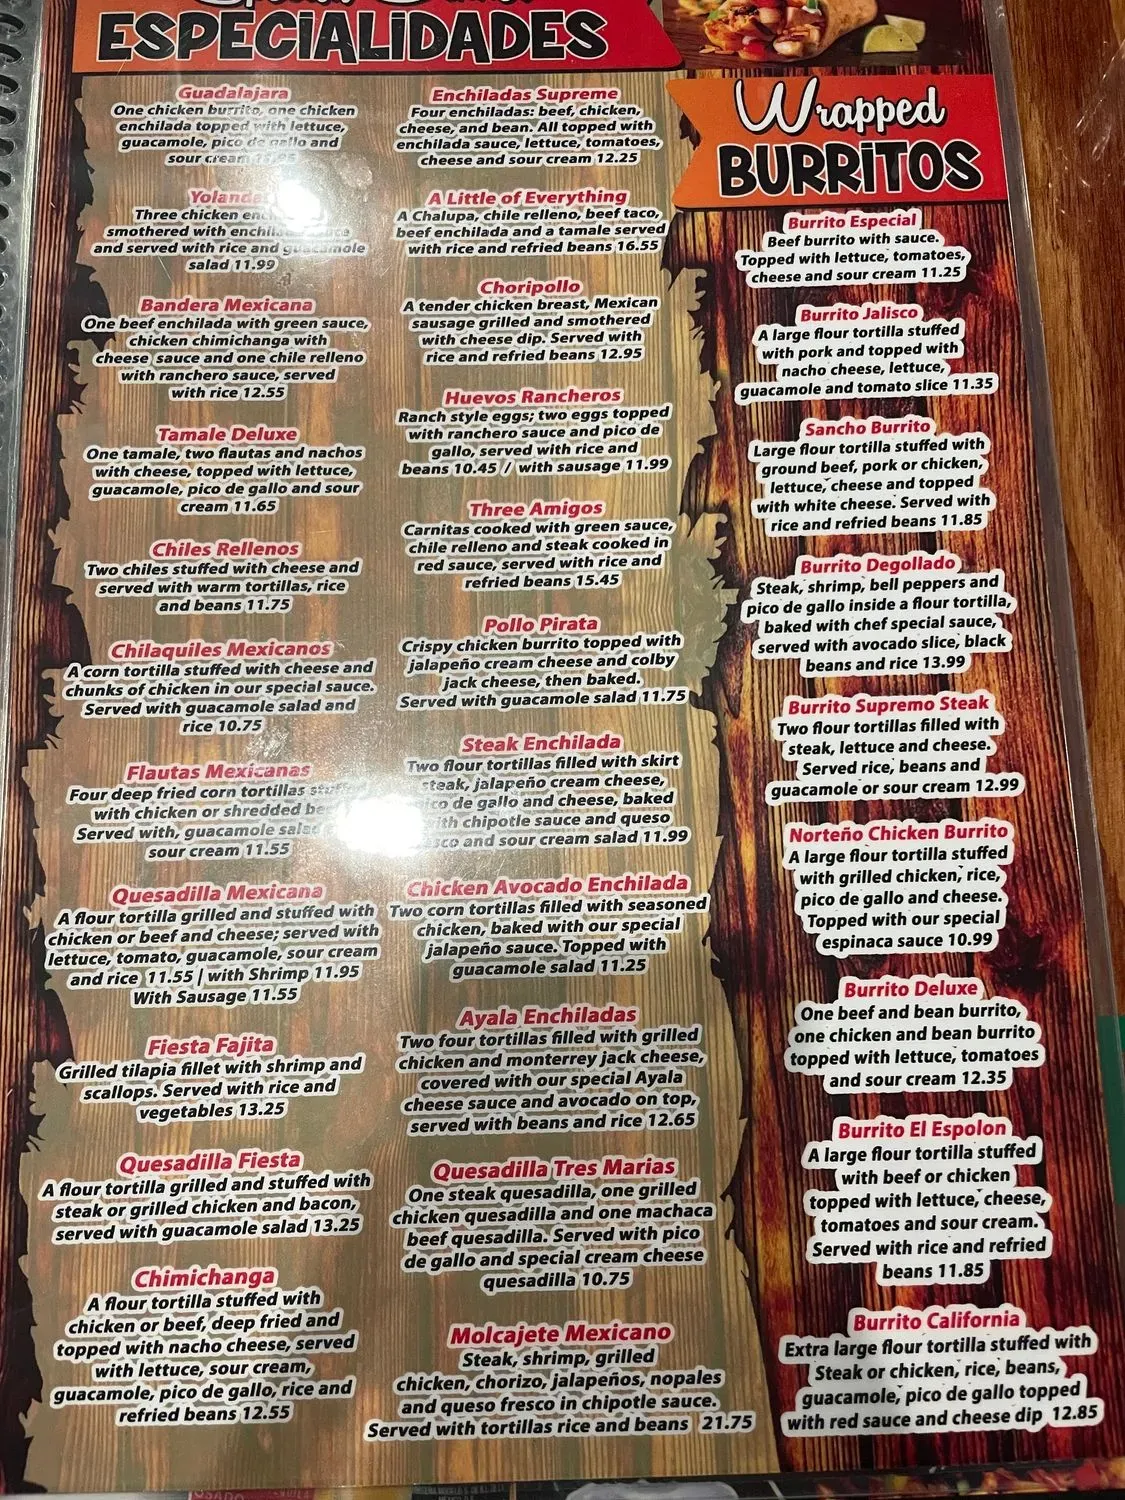 ESPECIALIDADES
Guadalajara
One chicken burrito, one chicken
enchilada topped with lettuce,
guacamole, pico de gallo and
sour cream
Yolanda
Three chicken
smothered with
and served with rice and guacamole
salad 11.99
Bandera Mexicana
One beef enchilada with green sauce,
chicken chimichanga with
cheese sauce and one chile relleno
with ranchero sauce, served
with rice 12.55
Tamale Deluxe
One tamale, two flautas and nachos
with cheese, topped with lettuce,
guacamole, pico de gallo and sour
cream 11.65
Chiles Rellenos
Two chiles stuffed with cheese and
served with warm tortillas, rice
and beans 11.75
Chilaquiles Mexicanos
A corn tortilla stuffed with cheese and
chunks of chicken in our special sauce.
Served with guacamole salad and
rice 10.75
Flautas Mexicanas
Four deep fried corn tortillas
with chicken or shredded
Served with, guacamole
sour cream 11.55
Quesadilla Mexicana
A flour tortilla grilled and stuffed with
chicken or beef and cheese; served with
lettuce, tomato, guacamole, sour cream
and rice 11.55 | with Shrimp 11.95
With Sausage 11.55
Fiesta Fajita
Grilled tilapia fillet with shrimp and
scallops. Served with rice and
vegetables 13.25
Quesadilla Fiesta
A flour tortilla grilled and stuffed with
steak or grilled chicken and bacon,
served with guacamole salad 13.25
Chimichanga
A flour tortilla stuffed with
chicken or beef, deep fried and
topped with nacho cheese, served
with lettuce, sour cream,
guacamole, pico de gallo, rice and
refried beans 12.55
Enchiladas Supreme
Four enchiladas: beef, chicken,
cheese, and bean. All topped with
enchilada sauce, lettuce, tomatoes,
cheese and sour cream 12.25
A Little of Everything
A Chalupa, chile relleno, beef taco,
beef enchilada and a tamale served
with rice and refried beans 16.55
Choripollo
A tender chicken breast, Mexican
sausage grilled and smothered
with cheese dip. Served with
rice and refried beans 12.95
Huevos Rancheros
Ranch style eggs; two eggs topped
with ranchero sauce and pico de
gallo, served with rice and
beans 10.45 / with sausage 11.99
Three Amigos
Carnitas cooked with green sauce,
chile relleno and steak cooked in
red sauce, served with rice and
refried beans 15.45
Pollo Pirata
Crispy chicken burrito topped with
jalapeño cream cheese and colby
jack cheese, then baked.
Served with guacamole salad 11.75
Steak Enchilada
Two flour tortillas filled with skirt
steak, jalapeño cream cheese,
pico de gallo and cheese, baked
with chipotle sauce and queso
fresco and sour cream salad 11.99
Chicken Avocado Enchilada
Two corn tortillas filled with seasoned
chicken, baked with our special
jalapeño sauce. Topped with
guacamole salad 11.25
Ayala Enchiladas
Two four tortillas filled with grilled
chicken and monterrey jack cheese,
covered with our special Ayala
cheese sauce and avocado on top,
served with beans and rice 12.65
Quesadilla Tres Marias
One steak quesadilla, one grilled
chicken quesadilla and one machaca
beef quesadilla. Served with pico
de gallo and special cream cheese
quesadilla 10.75
Molcajete Mexicano
Steak, shrimp, grilled
chicken, chorizo, jalapeños, nopales
and queso fresco in chipotle sauce.
Served with tortillas rice and beans 21.75
Wrapped
BURRITOS
Burrito Especial
Beef burrito with sauce.
Topped with lettuce, tomatoes,
cheese and sour cream 11.25
Burrito Jalisco
A large flour tortilla stuffed
with pork and topped with
nacho cheese, lettuce,
guacamole and tomato slice 11.35
Sancho Burrito
Large flour tortilla stuffed with
ground beef, pork or chicken,
lettuce, cheese and topped
with white cheese. Served with
rice and refried beans 11.85
Burrito Degollado
Steak, shrimp, bell peppers and
pico de gallo inside a flour tortilla,
baked with chef special sauce,
served with avocado slice, black
beans and rice 13.99
Burrito Supremo Steak
Two flour tortillas filled with
steak, lettuce and cheese.
Served rice, beans and
guacamole or sour cream 12.99
Norteño Chicken Burrito
A large flour tortilla stuffed
with grilled chicken, rice,
pico de gallo and cheese.
Topped with our special
espinaca sauce 10.99
Burrito Deluxe
One beef and bean burrito,
one chicken and bean burrito
topped with lettuce, tomatoes
and sour cream 12.35
Burrito El Espolon
A large flour tortilla stuffed
with beef or chicken
topped with lettuce, cheese,
tomatoes and sour cream.
Served with rice and refried
beans 11.85
Burrito California
Extra large flour tortilla stuffed with
Steak or chicken, rice, beans,
guacamole, pico de gallo topped
with red sauce and cheese dip 12.85